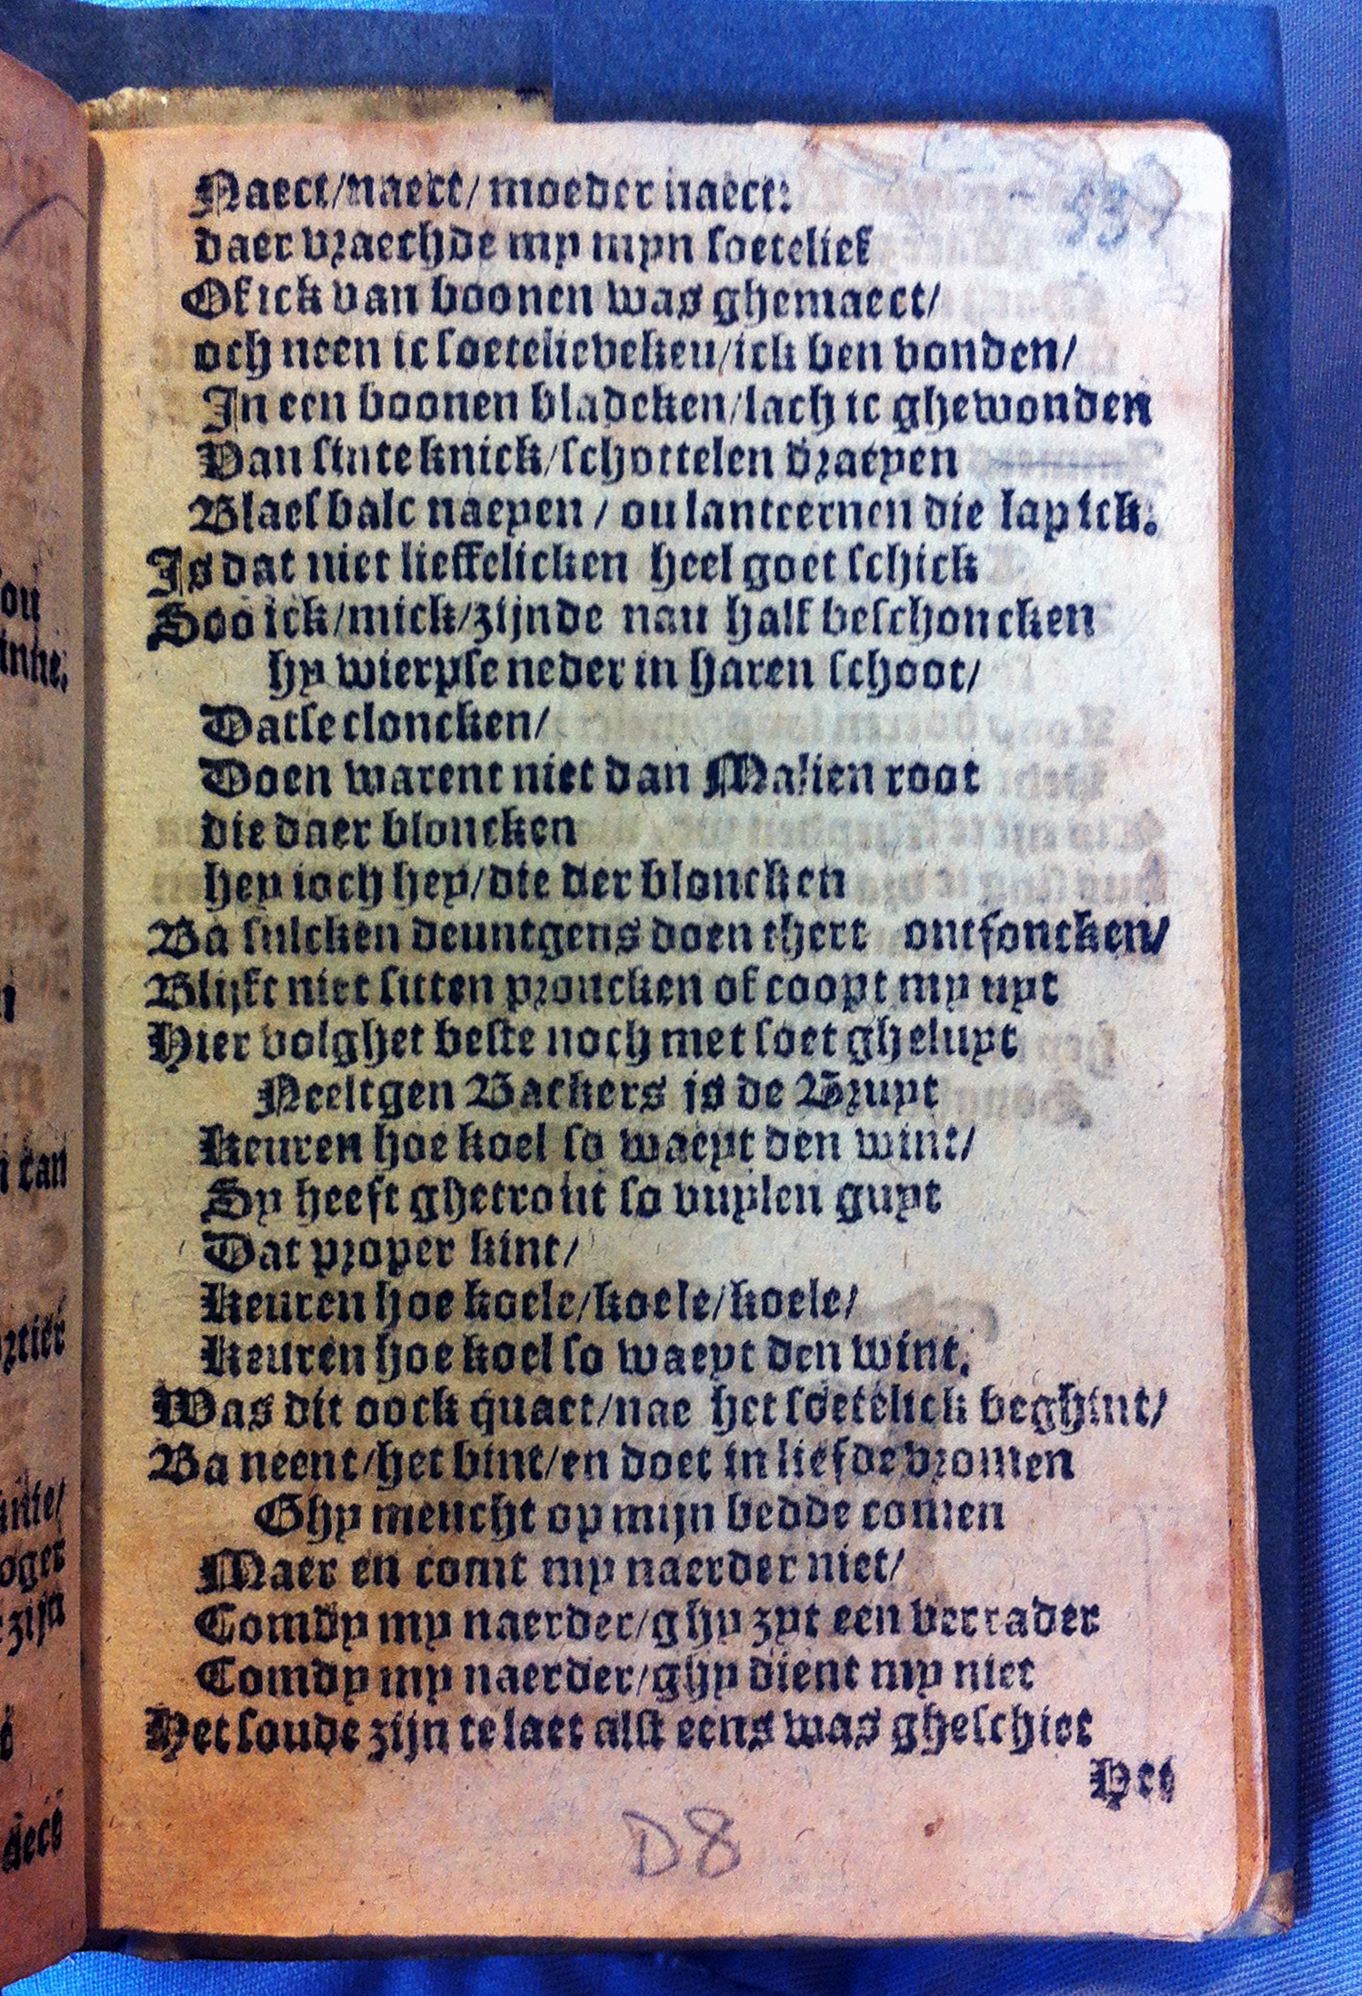 Naect/naect/ moeder naect:
daer vraechde my myn soetelief
Of ick van boonen was ghemaect/
och neen ic soetelieveken/ick ben vonden/
In een boonen bladcken/lach ic ghewonden
Van sinte knick/schottelen draeyen
Blaesbalc naeyen / ou lanteernen die lap ick.
Is dat niet lieffelicken heel goet schick
Soo ick/mick/zijnde nau half beschoncken
hy wierpse neder in haren schoot/
Datse cloncken/
Doen warent niet dan Malien root
die daer bloncken
hey ioch hey/die der bloncken
Ba sulcken deuntgens doen thert ontfoncken/
Blijft niet sitten proncken of coopt my uyt
Hier volghet beste noch met soet gheluyt
Neeltgen Backers is de Bruyt
Keuren hoe koel so waeyt den wint/
Sy heeft ghetrout so vuylen guyt
Dat proper kint/
Keuren hoe koele/koele/koele/
Keuren hoe koel so waeyt den wint.
Was dit oock quaet/nae het soetelick beghint/
Ba neent/het bint/en doet in liefde vromen
Ghy meucht op mijn bedde comen
Maer en comt my naerder niet/
Comdy my naerder/ghy zyt een verrader
Comdy my naerder/ghy dient my niet
Het soude zijn te laet alst eens was gheschiet
Het
D8